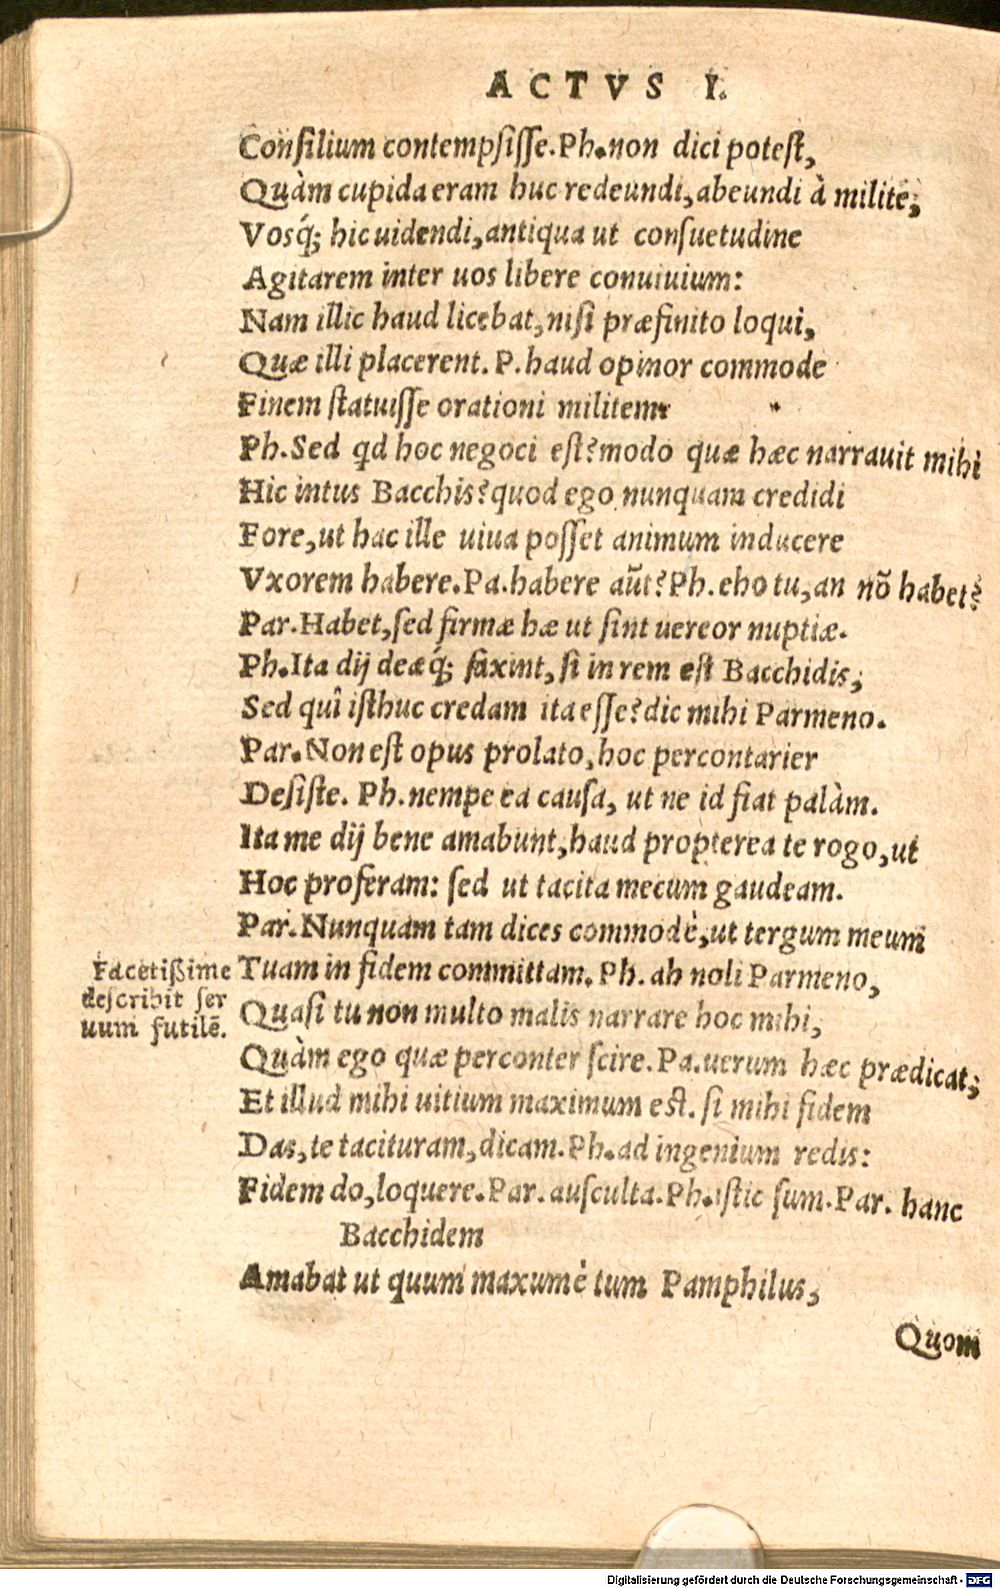 ACTVS I.
Conſilium contempſiſſe. Ph. non dici poteſt,
Quàm cupida eram huc redeundi, abeundi à milite,
Vosq́; hic uidendi, antiqua ut conſuetudine
Agitarem inter uos libere conuiuium:
Nam illic haud licebat, niſi præfinito loqui,
Quæ illi placerent. P. haud opinor commode
Finem ſtatuiſſe orationi militem.
Ph. Sed qd hoc negoci eſt? modo quæ hæc narrauit mihi
Hic intus Bacchis? quod ego nunquam credidi
Fore, ut hac ille uiua poſſet animum inducere
Vxorem habere. Pa. habere aũt? Ph. eho tu, an nõ habet?
Par. Habet, ſed firmæ hæ ut ſint uereor nuptiæ.
Ph. Ita dij deæq́; faxint, ſi in rem eſt Bacchidis,
Sed quî iſthuc credam ita eſſe? dic mihi Parmeno.
Par. Non eſt opus prolato, hoc percontarier
Deſiſte. Ph. nempe ea cauſa, ut ne id fiat palàm.
Ita me dij bene amabunt, haud propterea te rogo, ut
Hoc proferam: ſed ut tacita mecum gaudeam.
Par. Nunquam tam dices commodè, ut tergum meum
Tuam in fidem committam. Ph. ah noli Parmeno,
Quaſi tu non multo malis narrare hoc mihi,
Quàm ego quæ perconter ſcire. Pa. uerum hæc prædicat,
Et illud mihi uitium maximum eſt. ſi mihi fidem
Das, te tacituram, dicam. Ph. ad ingenium redis:
Fidem do, loquere. Par. auſculta. Ph. iſtic ſum. Par. hanc
Bacchidem
Amabat ut quum maxumè tum Pamphilus,
Quom
Facetißime
deſcribit ſer
uum futilẽ.
Digitalisierung gefördert durch die Deutsche Forschungsgemeinschaft - DFG